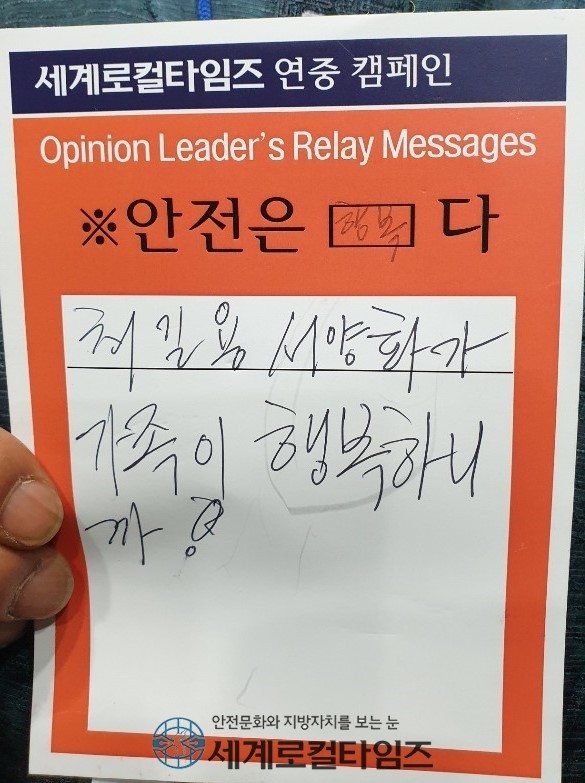 세계로컬타임즈 연중 캠페인
Opinion Leader's Relay Messages
※안전은 행복 다
최길용 서양화가
가족이 행복하니
까요
안전문화와 지방자치를 보는 눈
세계로컬타임즈